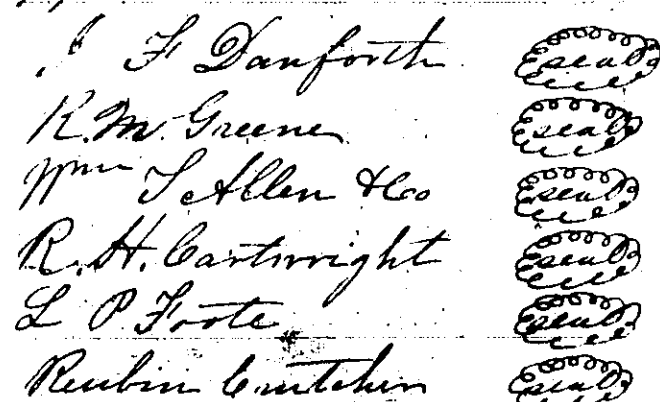 J F Danforth seal
R. M. Greene seal
Wm T Allen & Co seal
R. H. Cartwright seal
L P Foote seal
Reubin Crutcher seal